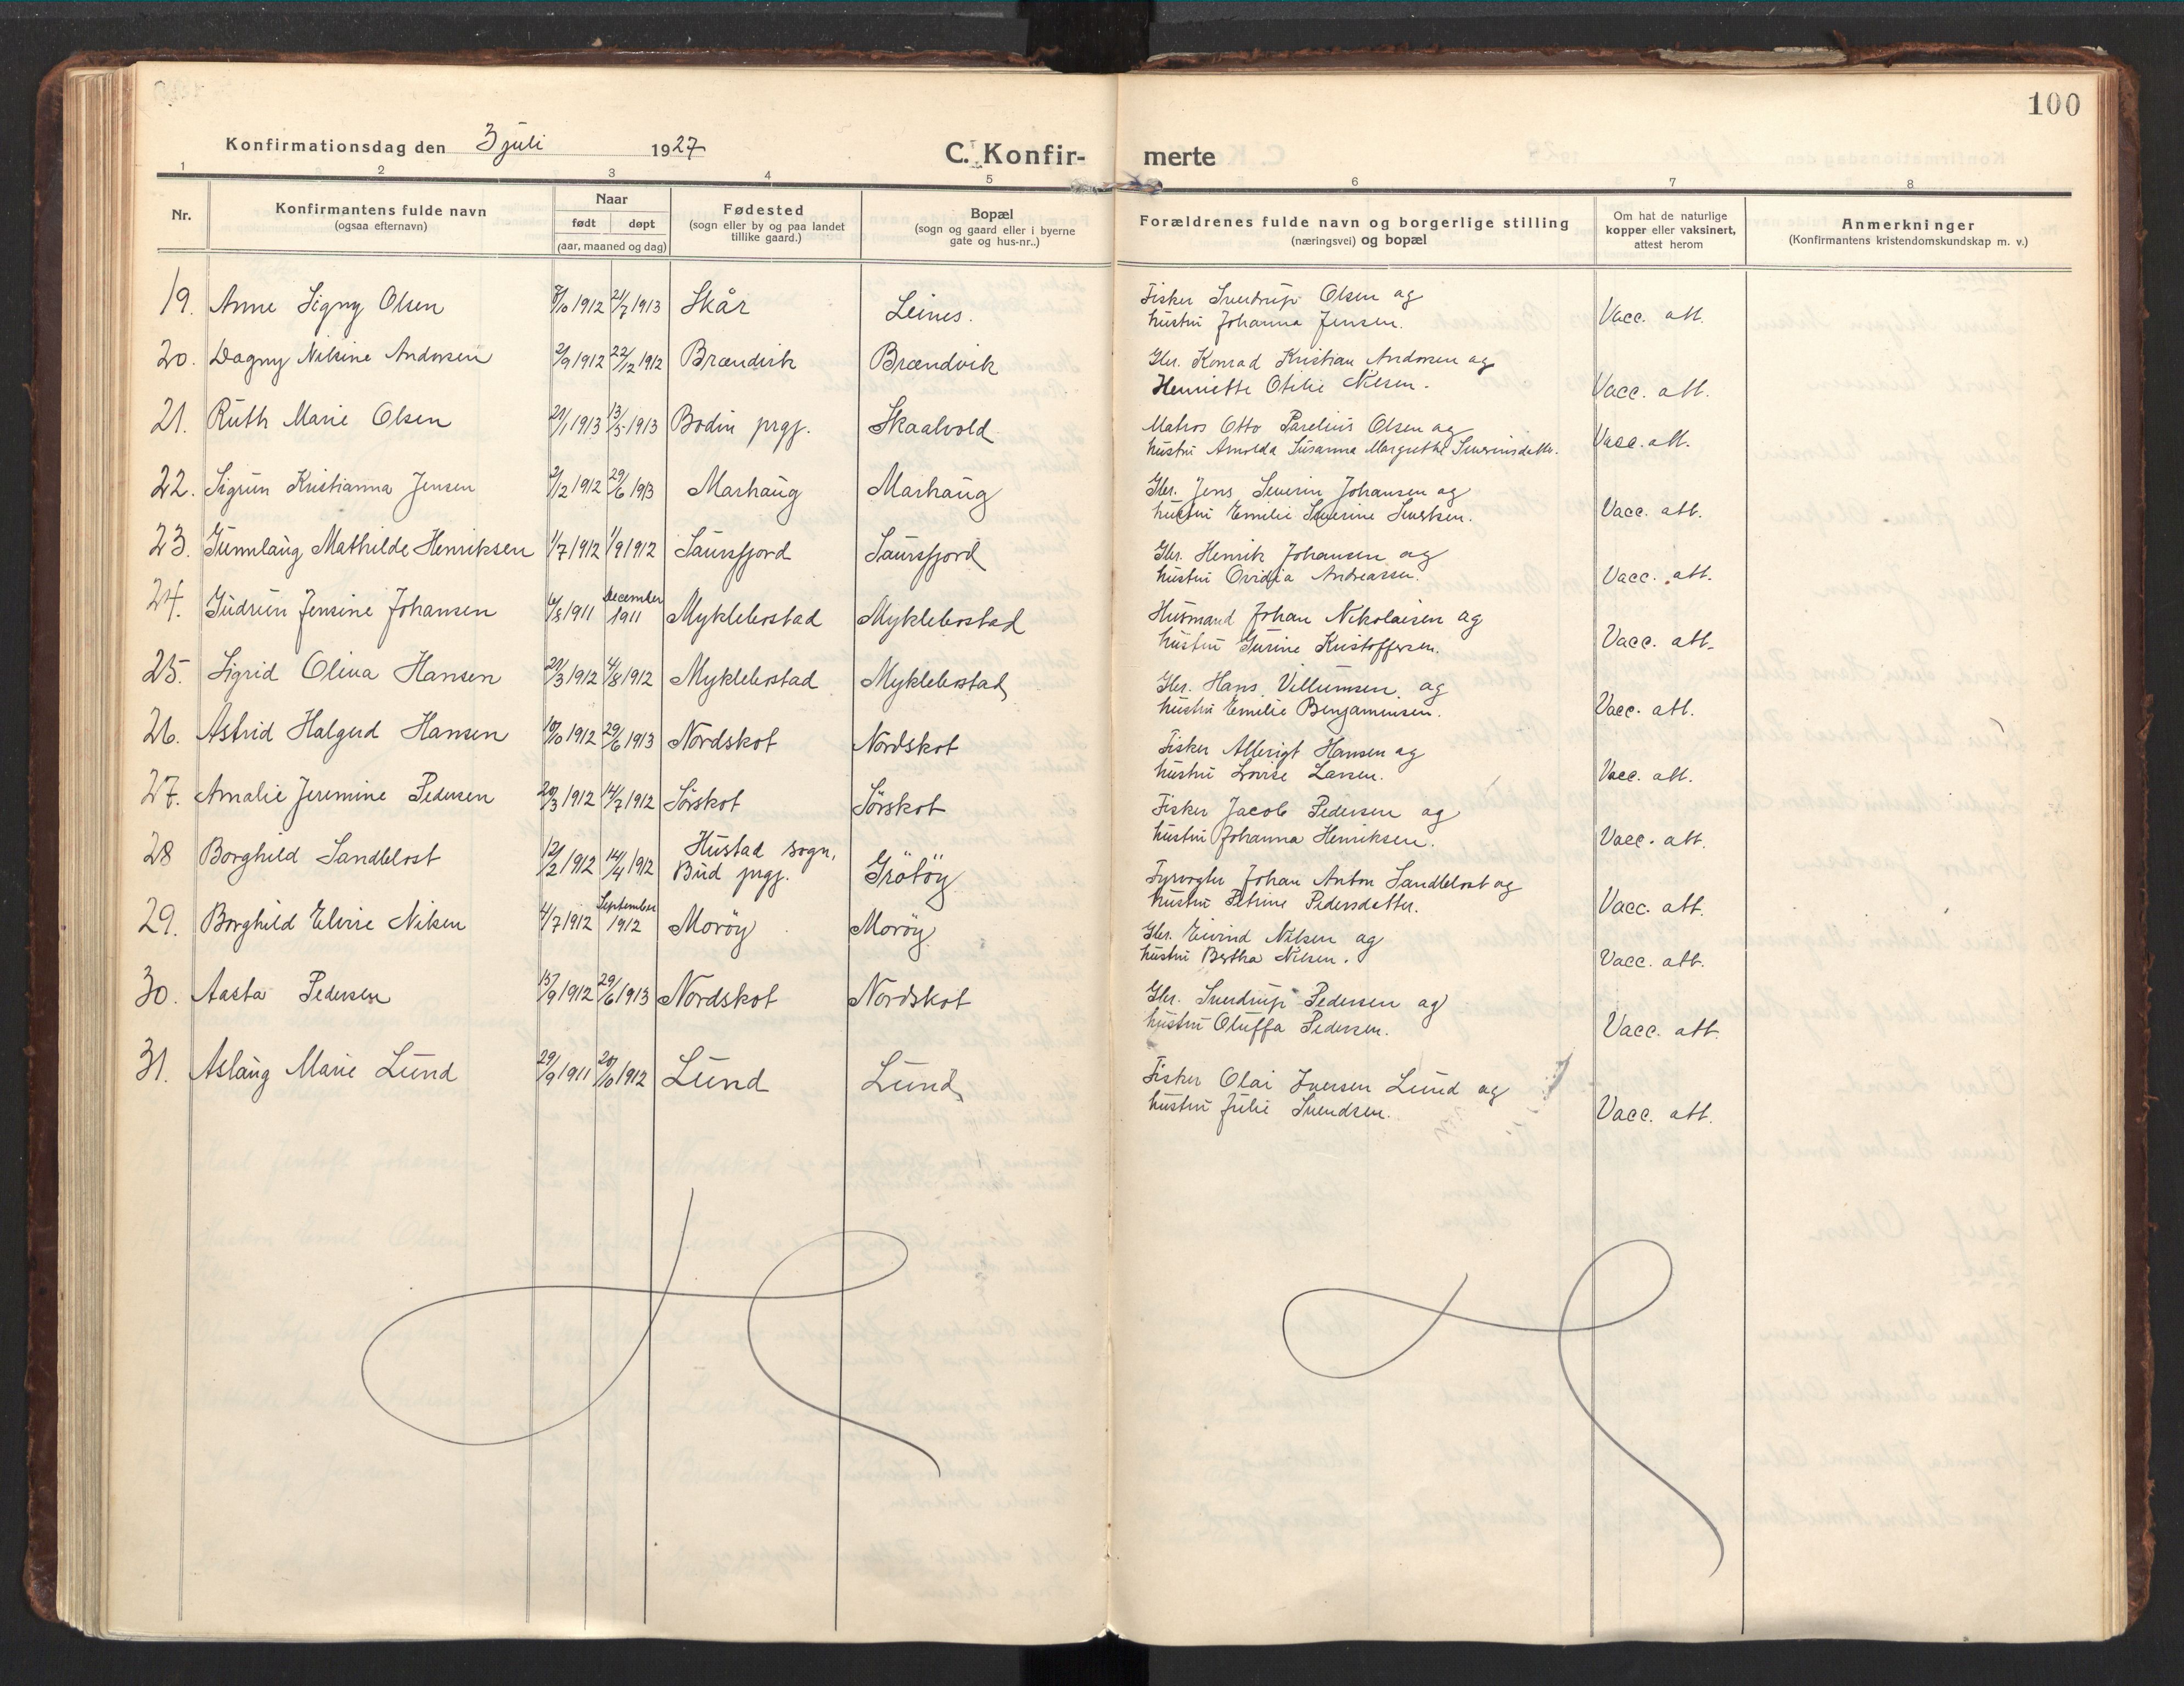 100
Konfirmationsdag den 3 juli 1927
C. Konfir- merte
1 2 3 4 5 6 7 8
Nr.
Konfirmantens fulde navn
(ogsaa efternavn)
Naar
født døpt
(aar, maaned og dag)
Fødested
(sogn eller by og paa landet
tillike gaard.)
Bopæl
(sogn og gaard eller i byerne
gate og hus-nr..)
Forældrenes fulde navn og borgerlige stilling
(næringsvei) og bopæl
Om hat de naturlige
kopper eller vaksinert,
attest herom
Anmerkninger
(Konfirmantens kristendomskundskap m. v.)
19. Anne Signy Olsen /10 1912 21/7 1913 Skår Leines.
Fisker Sverdrup Olsen og
hustru Johanna Jensen. Vacc. att.
20. Dagny Nilsine Andorsen 2/9 1912 22/12 1912 Brændvik Brændvik
Gbr. Konrad Kristian Andorsen og
Henriette Otilie Nilsen. Vacc. att.
21. Ruth Marie Olsen 21/1 1913 13/5 1913 Bodin prgj. Skaalvold
Matros Otto Parelius Olsen og
hustru Arnolda Susanna Margrethe Severinsdatter. Vacc. att.
22. Sigrun Kristianna Jensen 2/12 1912 29/6 1913 Marhaug Marhaug
Gbr. Jens Severin Johansen og
hustru Emilie Severine Sivertsen. Vacc. att.
23. Gunnlaug Mathilde Henriksen 1/7 1912 1/9 1912 Saursfjord Saursfjord
Gbr. Henrik Johansen og
hustru Ovidia Andreassen. Vacc. att.
24. Gudrun Jensine Johansen 6/8 1911 December 1911 Myklebostad Myklebostad
Husmand Johan Nikolaisen og
hustru Gurine Kristoffersen. Vacc. att.
25. Sigrid Oliva Hansen 21/3 1912 4/8 1912 Myklebostad Myklebostad
Gbr. Hans Villumsen og
hustru Emilie Benjaminsen. Vacc. att.
26. Astrid Halgerd Hansen 10/10 1912 29/6 1913 Nordskot Nordskot
Fisker Albrigt Hansen og
hustru Lovise Larsen. Vacc. att.
27. Amalie Jeremine Pedersen 20/3 1912 14/7 1912 Sörskot Sörskot
Fisker Jacob Pedersen og
hustru Johanna Henriksen. Vacc. att.
28 Borghild Sandblost 12/2 1912 14/4 1912 Hustad sogn, Bud prgj. Grötöy
Fyrvogter Johan Anton Sandblost og
hustru Petrine Pedersdatter. Vacc. att.
29. Borghild Elvire Nilsen 4/7 1912 September 1912 Moröy Moröy
Gbr. Eivind Nilsen og
hustru Bertha Nilsen. Vacc. att.
30. Aasta Pedersen 15/9 1912 29/6 1913 Nordskot Nordskot
Gbr. Sverdrup Pedersen og
hustru Oluffa Pedersen. Vacc. att.
31. Aslaug Marie Lund 29/9 1911 20/10 1912 Lund Lund
Fisker Olai Iversen Lund og
hustru Julie Svendsen. Vacc. att.